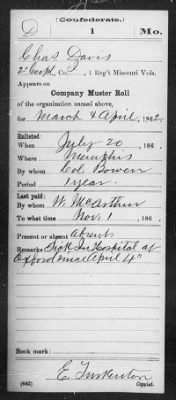 (Confederate.)
D 1 Mo.
Chas Davis
2d Corpl, Co. , 1 Reg't Missouri Vols.
Appears on
Company Muster Roll
of the organization named above,
for March & April, 1862.
Enlisted:
When July 20, 186 .
Where Memphis
By whom Col. Bowen
Period 1 year
Last paid:
By whom W. McArthur
To what time Nov. 1, 186 .
Present or absent Absent
Remarks: Sick In Hospital at
Oxford since April 4"
Book mark:
(642) Copyist.